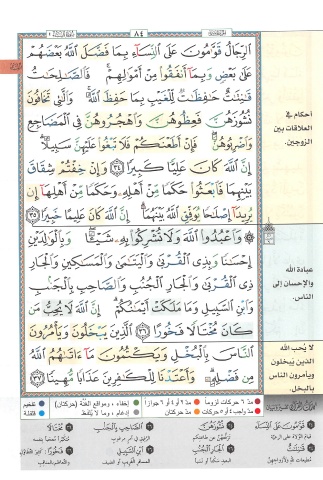 ٨٤
الرِّجَالُ قَوَّامُونَ عَلَى النِّسَاءِ بِمَا فَضَّلَ اللَّهُ بَعْضَهُمْ
عَلَى بَعْضٍ وَبِمَا أَنفَقُوا مِنْ أَمْوَالِهِمْ فَالصَّالِحَاتُ
قَانِتَاتٌ حَافِظَاتٌ لِّلْغَيْبِ بِمَا حَفِظَ اللَّهُ وَالَّتِي تَخَافُونَ
نُشُوزَهُنَّ فَعِظُوهُنَّ وَاهْجُرُوهُنَّ فِي الْمَضَاجِعِ
وَاضْرِبُوهُنَّ فَإِنْ أَطَعْنَكُمْ فَلَا تَبْغُوا عَلَيْهِنَّ سَبِيلًا
إِنَّ اللَّهَ كَانَ عَلِيًّا كَبِيرًا ٣٤ وَإِنْ خِفْتُمْ شِقَاقَ
بَيْنِهِمَا فَابْعَثُوا حَكَمًا مِّنْ أَهْلِهِ وَحَكَمًا مِّنْ أَهْلِهَا إِن
يُرِيدَا إِصْلَاحًا يُوَفِّقِ اللَّهُ بَيْنَهُمَا إِنَّ اللَّهَ كَانَ عَلِيمًا خَبِيرًا ٣٥
وَاعْبُدُوا اللَّهَ وَلَا تُشْرِكُوا بِهِ شَيْئًا وَبِالْوَالِدَيْنِ
إِحْسَانًا وَبِذِي الْقُرْبَى وَالْيَتَامَى وَالْمَسَاكِينِ وَالْجَارِ
ذِي الْقُرْبَى وَالْجَارِ الْجُنُبِ وَالصَّاحِبِ بِالْجَنبِ
وَابْنِ السَّبِيلِ وَمَا مَلَكَتْ أَيْمَانُكُمْ إِنَّ اللَّهَ لَا يُحِبُّ مَن
كَانَ مُخْتَالًا فَخُورًا ٣٦ الَّذِينَ يَبْخَلُونَ وَيَأْمُرُونَ
النَّاسَ بِالْبُخْلِ وَيَكْتُمُونَ مَا آتَاهُمُ اللَّهُ
مِن فَضْلِهِ وَأَعْتَدْنَا لِلْكَافِرِينَ عَذَابًا مُّهِينًا ٣٧
أحكام في
العلاقات بين
الزوجين.
عبادة الله
والإحسان إلى
الناس.
لا يُحب الله
الذين يبخلون
ويأمرون الناس
بالبخل
مدّ ٦ حركات لزوماً مدّ ٢ أو ٤ أو ٦ جوازاً إخفاء، ومواقع الغُنَّة (حركتان) تفخيم
مدّ واجب ٤ أو ٥ حركات مدّ حركتان إدغام، وما لا يُلفَظ قلقلة